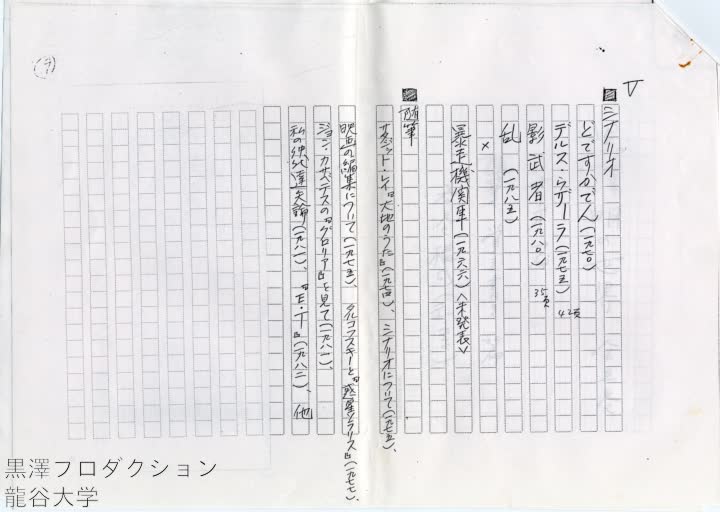 V
■シナリオ
どですかでん(一九七〇)
デルス・ウザーラ(一九七五) 42頁
影武者(一九八〇) 35頁
乱(一九八五)
×
暴走機関車(一九六六)〈未発表〉
■随筆
サタジット・レイ『大地のうた』(一九七四)、シナリオについて(一九七五)、
映画の編集について(一九七五)、タルコフスキーと『惑星ソラリス』(一九七七)、
ジョン・カサベテスの『グロリア』を見て(一九八一)、
私の映化達矢論(一九八一)、『E・T』(一九八二)、他
黒澤フロダクション
龍谷大学